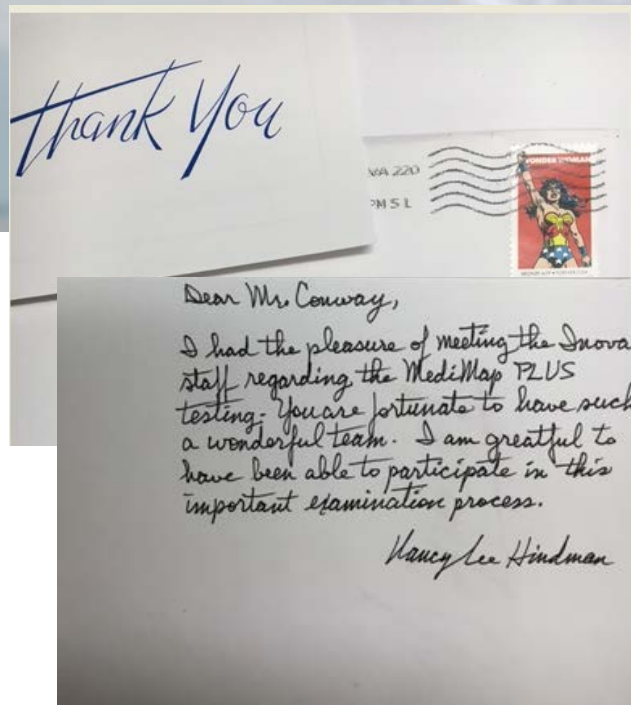 Thank You
VA 220
PM 5 L
WONDER WOMAN
Dear Mr. Conway,
I had the pleasure of meeting the Inova
staff regarding the MediMap PLUS
testing. You are fortunate to have such
a wonderful team. I am greatful to
have been able to participate in this
important examination process.
Nancy Lee Hindman